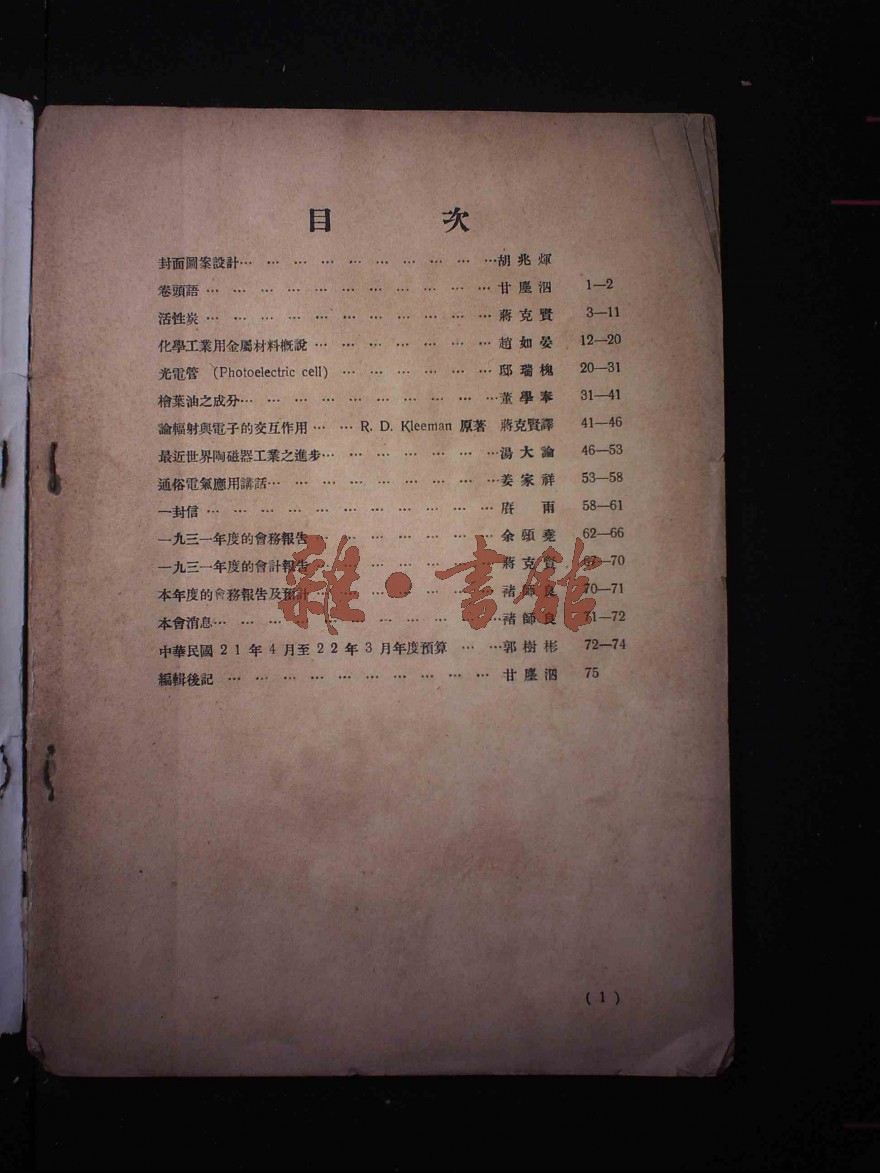 目 次
封面圖案設計… … … … … … … … … …胡兆煇
卷頭語 … … … … … … … … … … … 甘塵泗 1—2
活性炭 … … … … … … … … … … … 蔣克賢 3—11
化學工業用金屬材料概說 … … … … … … … 趙如晏 12—20
光電管 (Photoelectric cell) … … … … … … 邸瑞槐 20—31
檜葉油之成分… … … … … … … … … … 董學奉 31—41
論輻射與電子的交互作用 … … R. D. Kleeman 原著 蔣克賢譯 41—46
最近世界陶磁器工業之進步… … … … … … … 湯大論 46—53
通俗電氣應用講話… … … … … … … … … 姜家祥 53—58
一封信 … … … … … … … … … … … 雨 58—61
一九三一年度的會務報告 … … … … … … 余頌堯 62—66
一九三一年度的會計報告 … … … … … … 蔣克賢 67—70
本年度的會務報告及預計 … … … … … … 禇師良 70—71
本會消息… … … … … … … … … … … 禇師良 71—72
中華民國21年4月至22年3月年度預算 … …郭樹彬 72—74
編輯後記 … … … … … … … … … … 甘塵泗 75
雜·書館
(1)